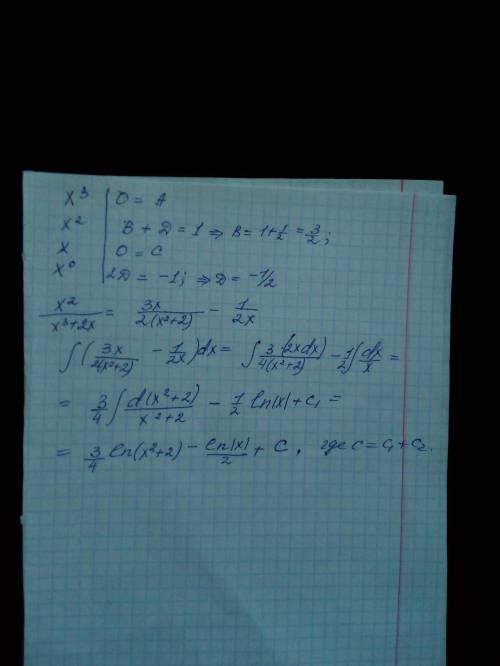 x³ | 0 = A
x² | B + D = 1 ⇒ B = 1+1/2 = 3/2;
x | 0 = C
x⁰ | 2D = -1; ⇒ D = -1/2
x²/(x³+2x) = 3x/(2(x²+2)) - 1/(2x)
∫(3x/(2(x²+2)) - 1/(2x))dx = ∫3(2xdx)/(4(x²+2)) - 1/2∫dx/x =
= 3/4 ∫ d(x²+2)/(x²+2) - 1/2 ln|x| + C₁ =
= 3/4 ln(x²+2) - ln|x|/2 + C, где C = C₁ + C₂.